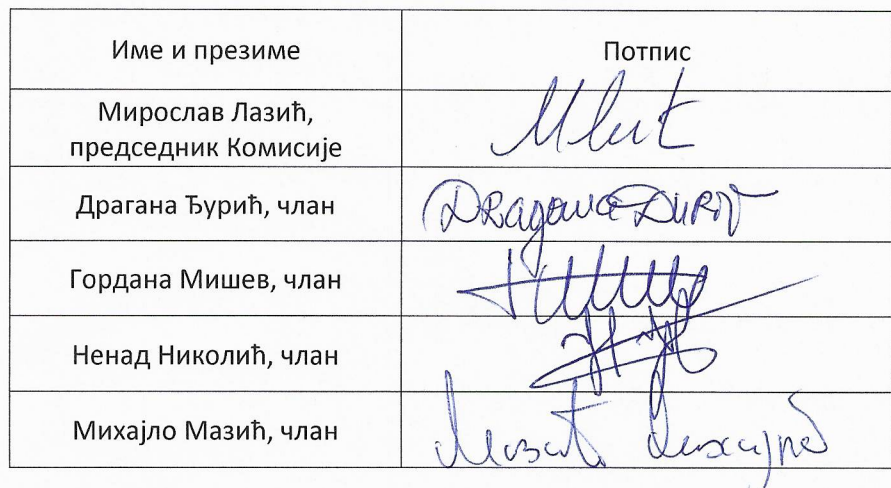 Име и презиме
Потпис
Мирослав Лазић,
председник Комисије
Драгана Ђурић, члан
Dragana Đurić
Гордана Мишев, члан
Ненад Николић, члан
Михајло Мазић, члан
Мазић Михајло